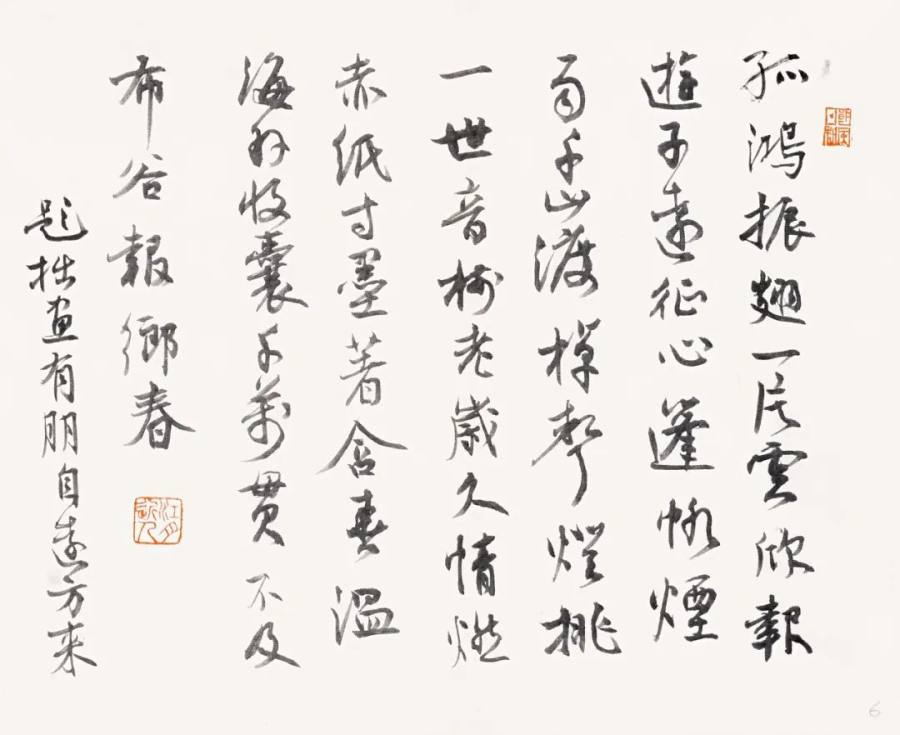 孤鴻振翅一片雲欣報
遊子遠征心蓬帆煙
雨千山渡棹聲燈挑
一世音樹老歲久情燃
赤紙寸墨著含春溫
海外收囊千萬貫不及
布谷報鄉春
題拙画有朋自遠方来
6